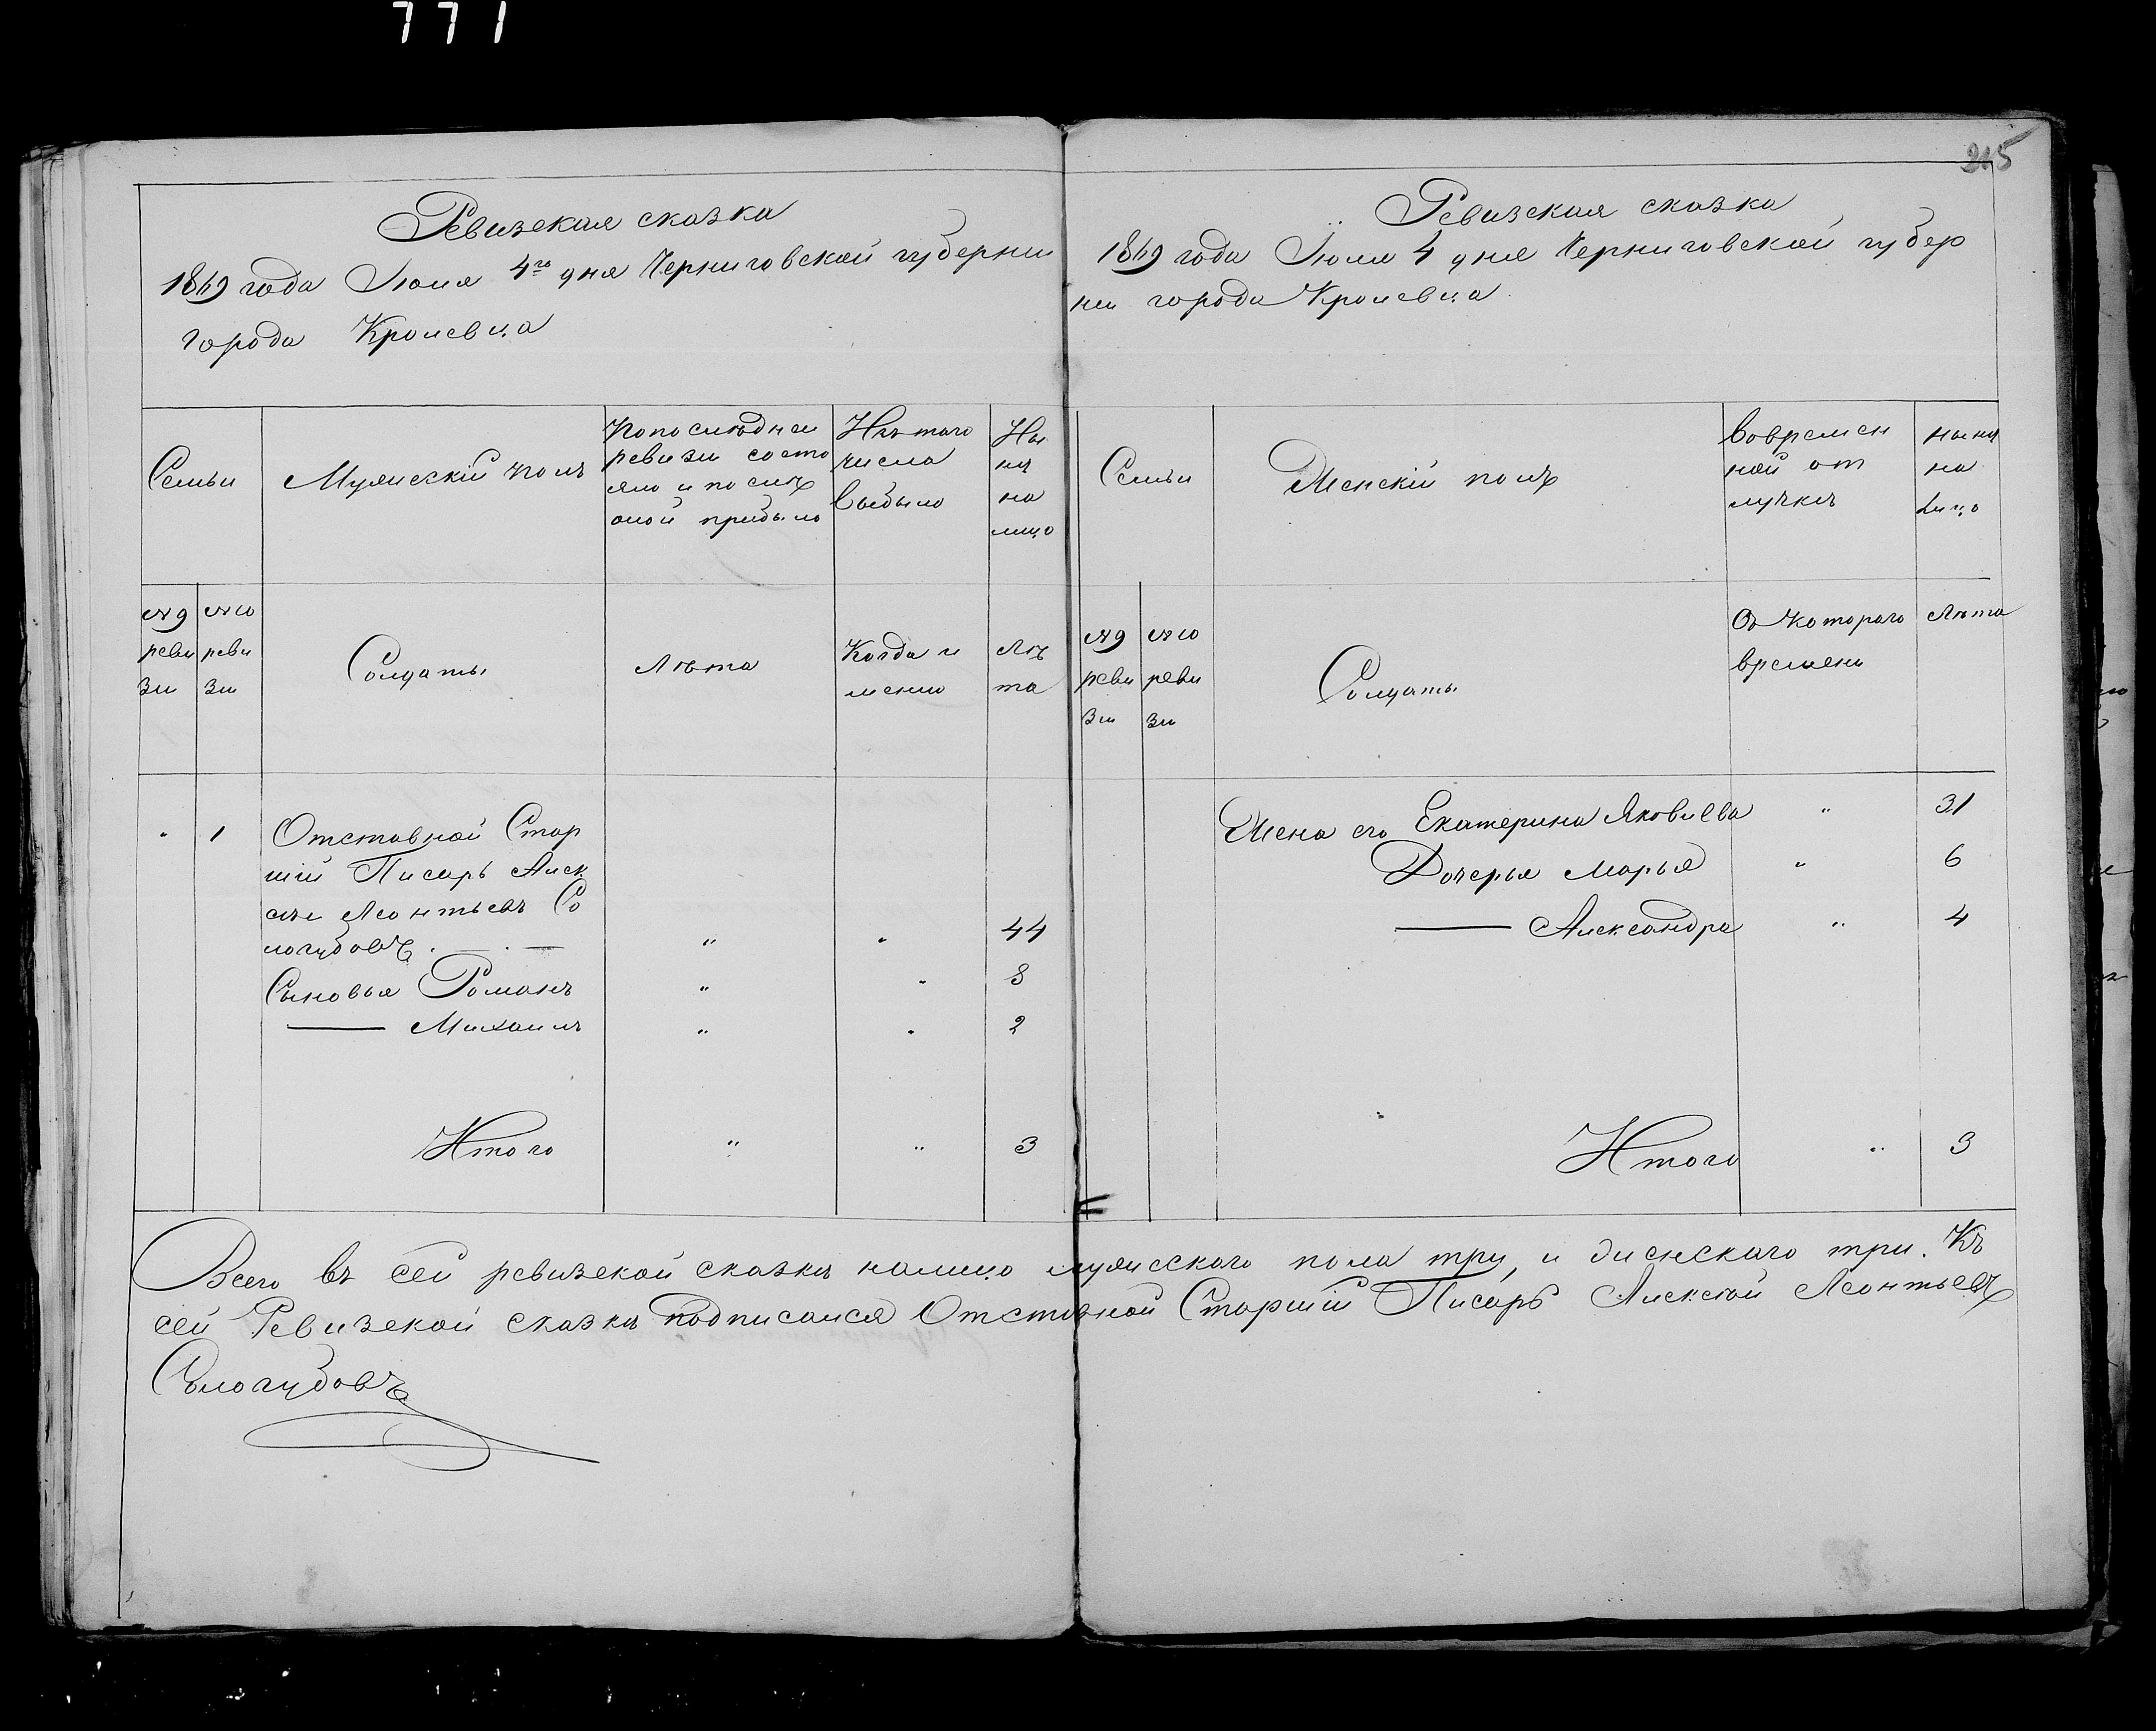 771
215
Ревизская сказка
1869 года Июля 4го дня Черниговской губернии
города Кролевца
Семьи
Мужескій полъ
По последней
ревизіи состо
яло и послѣ
оной прибыло
Изъ того
числа
выбыло
Ны
нѣ
на
лицо
№ 9
реви
зіи
№ 10
реви
зіи
Солдаты
Лѣта
Когда и
менно
Лѣ
та
" 1 Отставной Стар
шій Писарь Алек
сѣй Леонтьевъ Со
логубовъ " " 44
Сыновья Романъ " " 8
— Михаилъ " " 2
Итого " " 3
Ревизская сказка
1869 года Июля 4 дня Черниговской губер
ніи города Кролевца
Семьи
Женскій полъ
Вовремен
ной от
лучкѣ
нынѣ
на
лицо
№ 9
реви
зіи
№ 10
реви
зіи
Солдаты
Съ котораго
времени
Лѣта
Жена его Екатерина Яковлева " 31
Дочерья Марья " 6
— Александра " 4
Итого " 3
Всего въ сей ревизской сказкѣ налицо мужескаго пола три, и женскаго три. Къ
сей Ревизской сказкѣ подписался Отставной Старшій Писарь Алексей Леонтьевъ
Сологубовъ